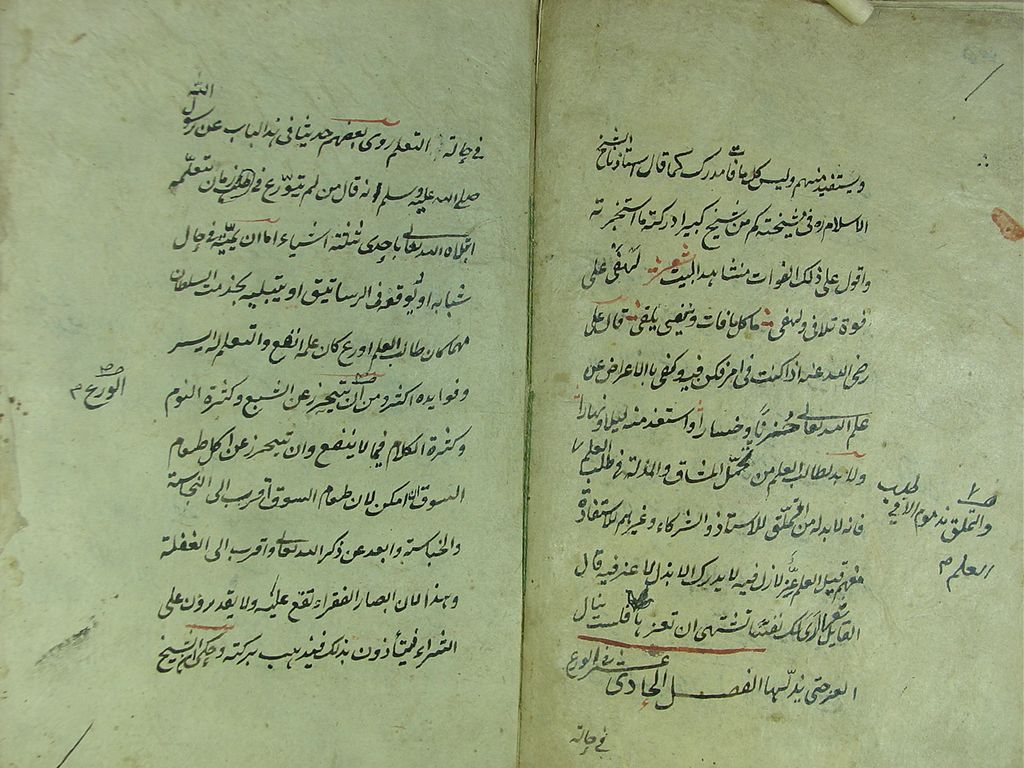 ويستفيد منهم وليس كل ما فات مدرك كما قال استاذنا شيخ
الاسلام ره في مشيخته كم من شيخ كبير ادركته ما استخبرته
واقول على ذلك الفوات منشا هذا البيت شعر لهفى على
فوة تلافى ولهفى ما كل ما فات ويفنى يلقى قال على
رضى الله عنه اذا كنت في امر فكن فيه وكفى بالاعراض عن
علم الله تعالى خزيا وخسارا واستعذ منه ليلا ونهارا
ولا بد لطالب العلم من تحمل المشاق والمذلة في طلب العلم
والتملق مذموم الا في طلب
العلم
فانه لا بد له من التملق للاستاذ والشركاء وغيرهم للاستفادة
منهم قيل العلم عز لا ذل فيه لا يدرك الا بذل لا عز فيه قال
القايل شعر ارى لك نفسا تشتهى ان تعزها فلست ينال
العز حتى يذلها الفصل الحادى عشر في الورع
في حالة
في حالة التعلم روى بعضهم حديثا في هذا الباب عن رسول الله
صلى الله عليه وسلم انه قال من لم يتورع في تعلمه
ابتلاه الله تعالى باحدى ثلثة اشياء اما ان يميته في حال
شبابه او يوقعه في الرساتيق او يبتليه بخدمت السلطان
مهما كان طالب العلم اورع كان علمه انفع والتعلم له ايسر
وفوايده اكثر ومن ان يتحرز عن الشبع وكثرة النوم
الورع
وكثرة الكلام فيما لا ينفع وان يتحرز عن اكل طعام
السوق ان امكن لان طعام السوق اقرب الى النجاسة
والخباسة وابعد عن ذكر الله تعالى واقرب الى الغفلة
وهذا لان ابصار الفقراء تقع عليه ولا يقدرون على
الشراء فيتأذون بذلك فيذهب بركته وحكى ان الشيخ